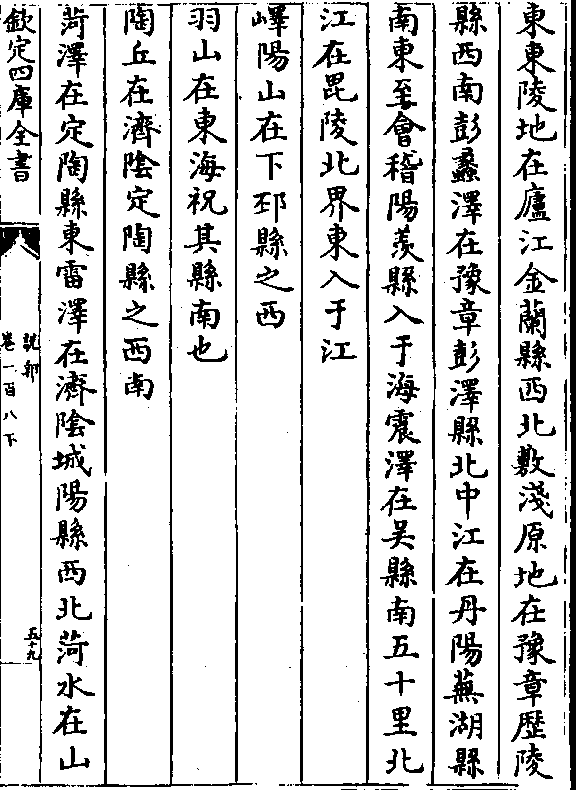 東東陵地在廬江金蘭縣西北敷淺原地在豫章歷陵
縣西南彭蠡澤在豫章彭澤縣北中江在丹陽蕪湖縣
南東至會稽陽羨縣入于海震澤在吳縣南五十里北
江在毘陵北界東入于江
嶧陽山在下邳縣之西
羽山在東海祝其縣南也
陶丘在濟陰定陶縣之西南
菏澤在定陶縣東雷澤在濟陰城陽縣西北菏水在山
欽定四庫全書
說郛
卷一百八下
五十九